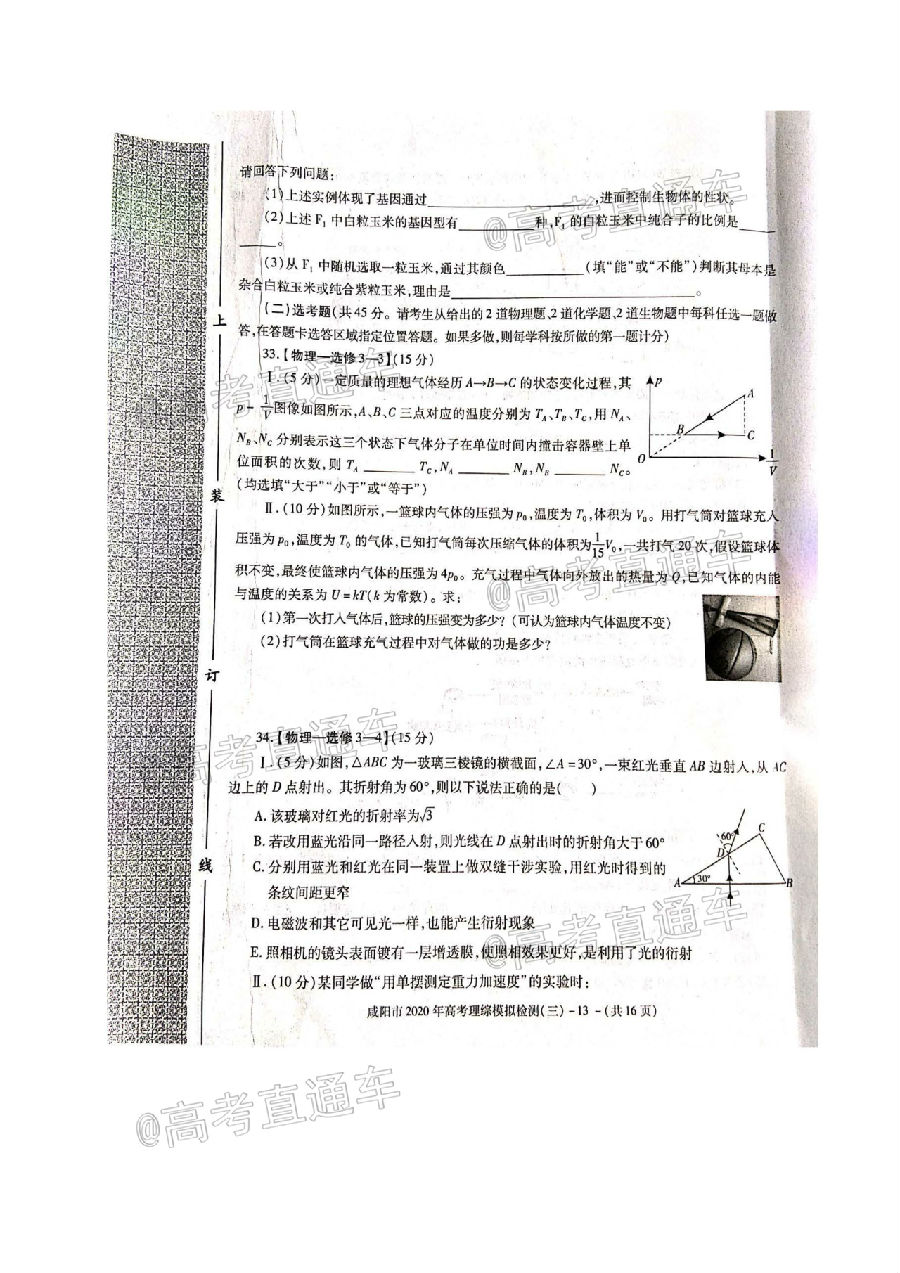 请回答下列问题:
(1)上述实例体现了基因通过____________,进而控制生物体的性状。
(2)上述 F₁ 中白粒玉米的基因型有________种,F₁ 的白粒玉米中纯合子的比例是
______。
(3)从 F₁ 中随机选取一粒玉米,通过其颜色________(填“能”或“不能”)判断其母本是
杂合白粒玉米或纯合紫粒玉米,理由是____________________。
(二)选考题(共 45 分。请考生从给出的 2 道物理题、2 道化学题、2 道生物题中每科任选一题做
答,在答题卡选答区域指定位置答题。如果多做,则每学科按所做的第一题计分)
33.【物理—选修 3—3】(15 分)
Ⅰ.(5 分)一定质量的理想气体经历 A→B→C 的状态变化过程,其
p－1/V图像如图所示,A、B、C 三点对应的温度分别为 T_A、T_B、T_C,用 N_A、
N_B、N_C 分别表示这三个状态下气体分子在单位时间内撞击容器壁上单
位面积的次数,则 T_A ______ T_C,N_A ______ N_B,N_B ______ N_C。
(均选填“大于”“小于”或“等于”)
p
A
B
C
O
1/V
Ⅱ.(10 分)如图所示,一篮球内气体的压强为 p₀,温度为 T₀,体积为 V₀。用打气筒对篮球充入
压强为 p₀,温度为 T₀ 的气体,已知打气筒每次压缩气体的体积为1/15V₀,一共打气 20 次,假设篮球体
积不变,最终使篮球内气体的压强为 4p₀。充气过程中气体向外放出的热量为 Q,已知气体的内能
与温度的关系为 U = kT(k 为常数)。求:
(1)第一次打入气体后,篮球的压强变为多少?(可认为篮球内气体温度不变)
(2)打气筒在篮球充气过程中对气体做的功是多少?
34.【物理—选修 3—4】(15 分)
Ⅰ.(5 分)如图,△ABC 为一玻璃三棱镜的横截面,∠A = 30°,一束红光垂直 AB 边射入,从 AC
边上的 D 点射出。其折射角为 60°,则以下说法正确的是(    )
A. 该玻璃对红光的折射率为√3
B. 若改用蓝光沿同一路径入射,则光线在 D 点射出时的折射角大于 60°
C. 分别用蓝光和红光在同一装置上做双缝干涉实验,用红光时得到的
条纹间距更窄
D. 电磁波和其它可见光一样,也能产生衍射现象
E. 照相机的镜头表面镀有一层增透膜,使照相效果更好,是利用了光的衍射
60°
C
D
A
30°
B
Ⅱ.(10 分)某同学做“用单摆测定重力加速度”的实验时:
咸阳市 2020 年高考理综模拟检测(三) - 13 - (共 16 页)
上
装
订
线
@高考直通车
考直通车
@高考直通车
高考直通车
@高考直通车
@高考直通车